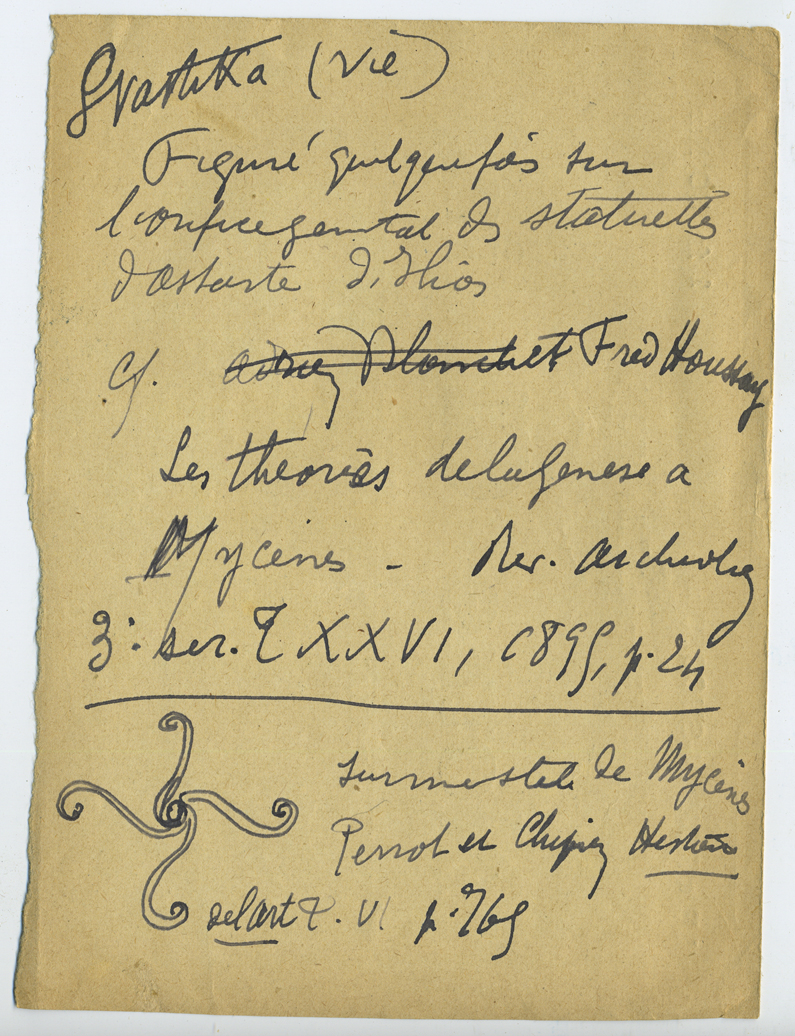 Svastika (vie)
Figuré quelquefois sur
l'orifice genital des statuettes
d'astarte d'Ilios
cf. Adrien Blanchet Fred Houssay
Les theories de la genese a
Mycènes - Rev. archeolog
3e ser. T XXVI, 1895, p. 24
sur une stele de Mycènes
Perrot et Chipiez Histoire
de l'art T. VI p. 765